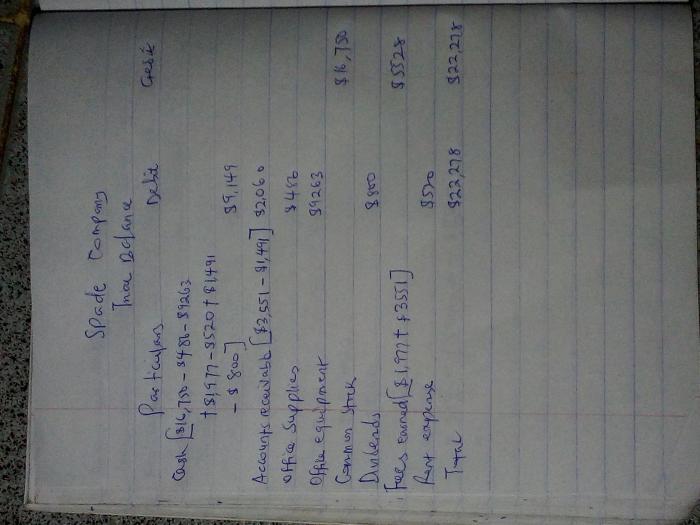 Spade Company
Trial Balance
Particulars Debit Credit
Cash [$16,750 - $486 - $9263
+ $1,977 - $520 + $1,491
- $800] $9,149
Accounts receivable [$3,551 - $1,491] $2,060
Office Supplies $486
Office equipment $9263
Common Stock $16,750
Dividends $800
Fees earned [$1,977 + $3551] $5528
Rent expense $520
Total $22,278 $22,278